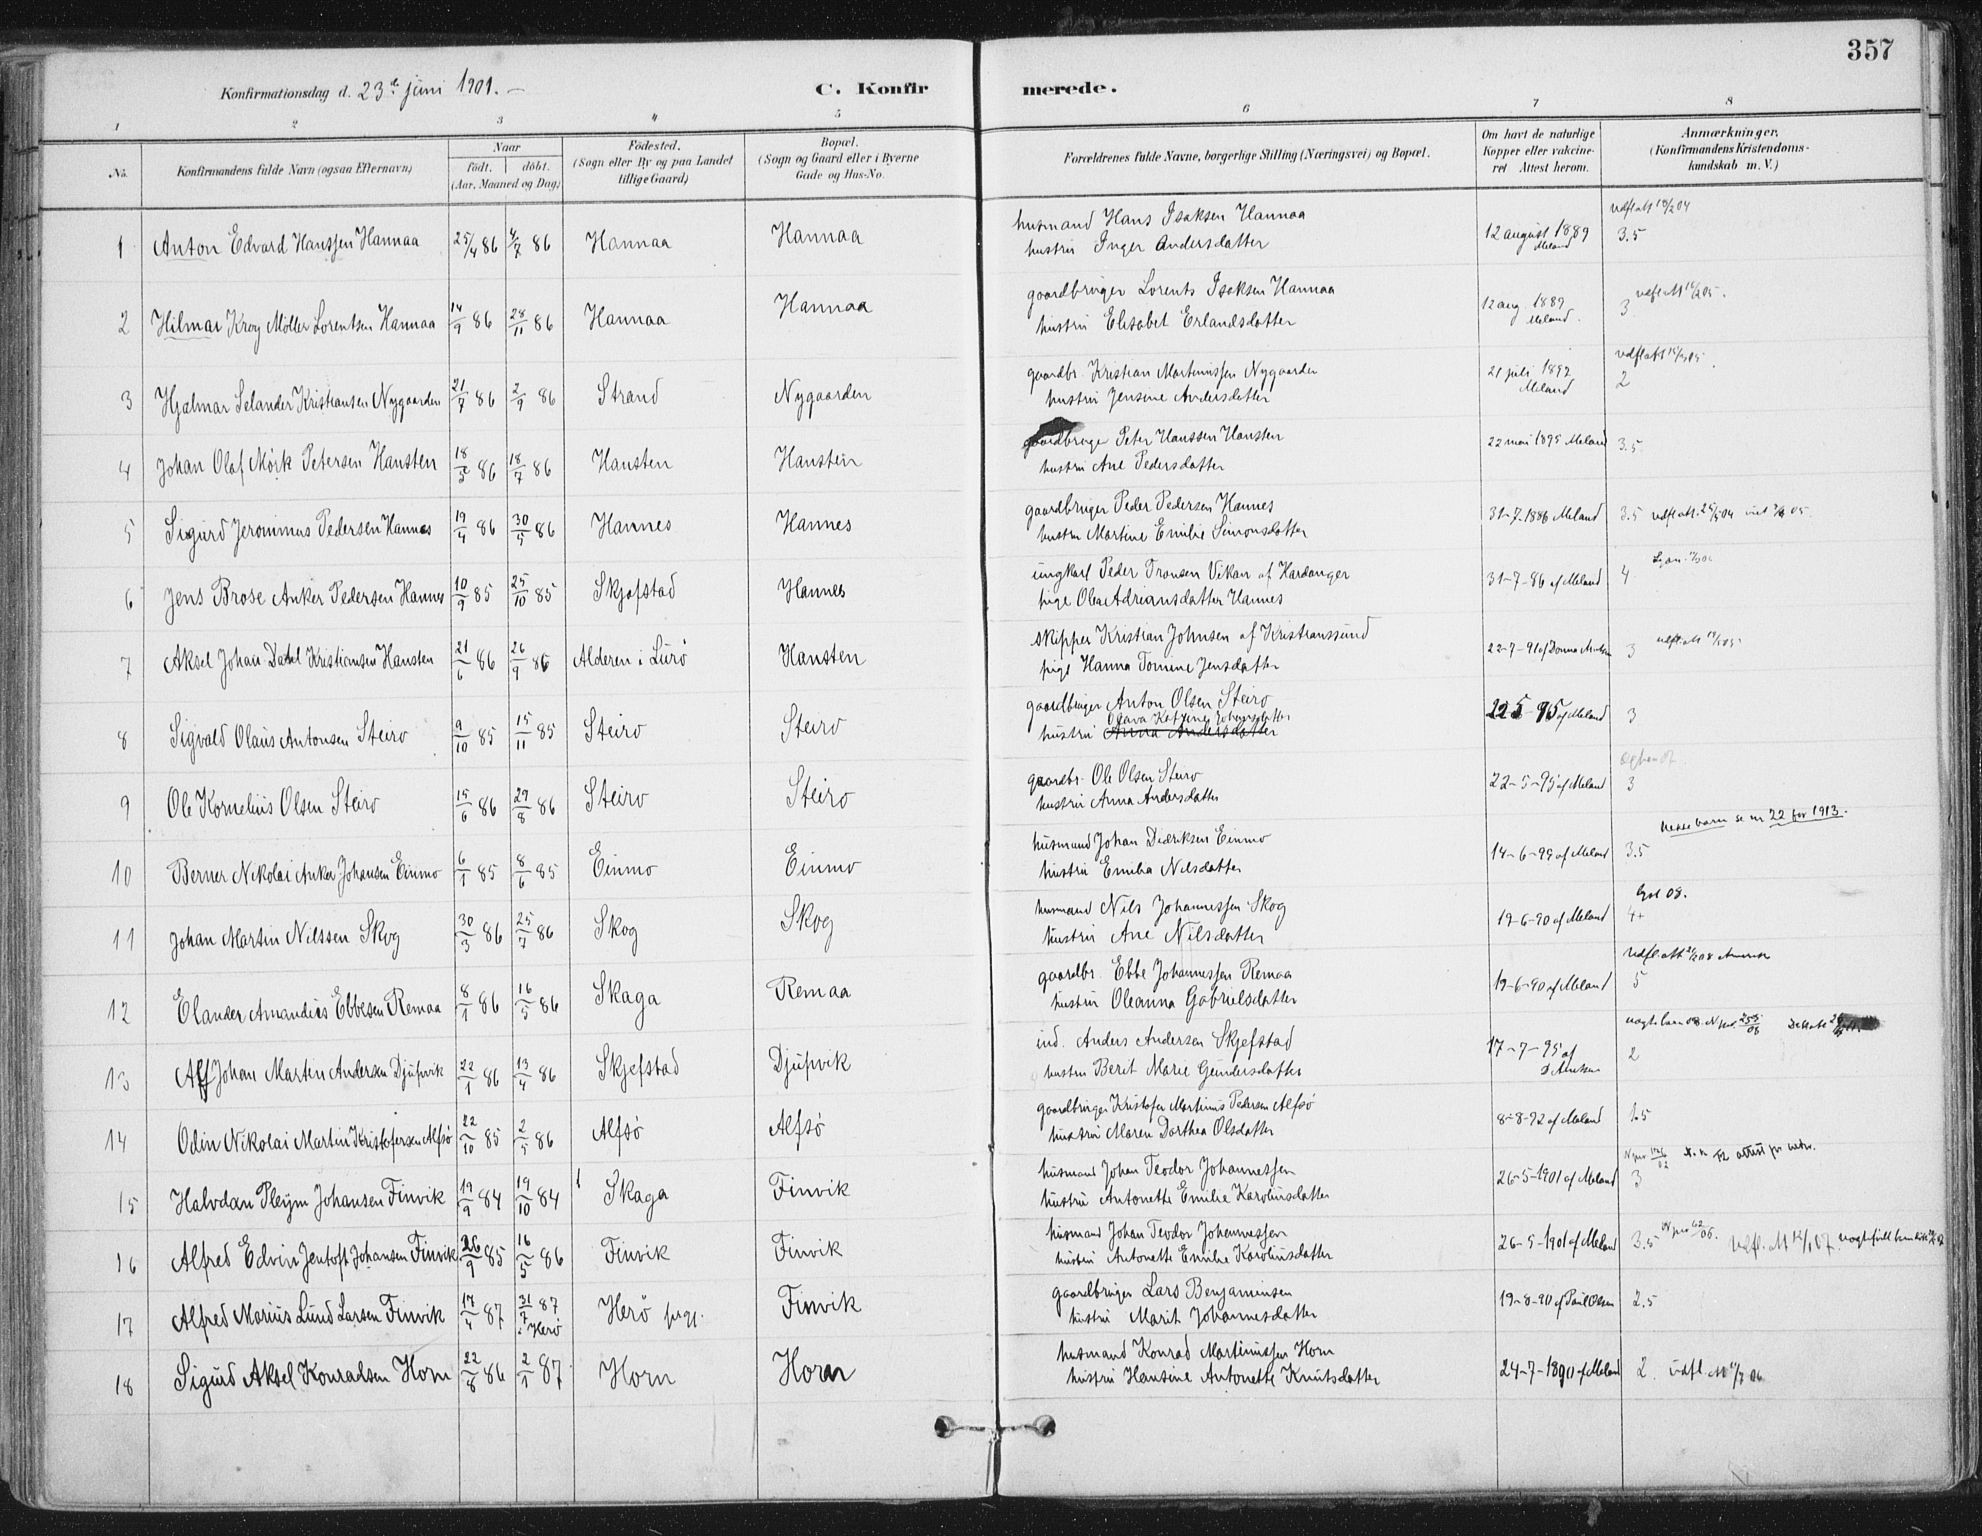 357
Konfirmationsdag d. 23de juni 1901. C. Konfirmerede.
1 2 3 4 5 6 7 8
No. Konfirmandens fulde Navn (ogsaa Efternavn) Naar födt. döbt. (Aar, Maaned og Dag) Födested. (Sogn eller By og paa Landet tillige Gaard) Bopæl. (Sogn og Gaard eller i Byerne Gade og Hus-No. Forældrenes fulde Navne, borgerlige Stilling (Næringsvei) og Bopæl. Om havt de naturlige Kopper eller vakcineret Attest herom. Anmærkninger. (Konfirmandens Kristendomskundskab m. V.)
1 Anton Edvard Hanssen Hannaa 25/4 86 4/7 86 Hannaa Hannaa husmand Hans Isaksen Hannaa 12 august 1889 Meland 3.5
hustru Inger Andersdatter
2 Hilmar Krog Möller Lorentsen Hannaa 14/9 86 28/11 86 Hannaa Hannaa gaardbruger Lorents Isaksen Hannaa 12 aug 1889 Meland. 3
hustru Elisabet Erlandsdatter
3 Hjalmar Selander Kristiansen Nygaarden 21/7 86 2/9 86 Strand Nygaarden gaardbr. Kristian Martinussen Nygaarden 21 juli 1892 Meland 2
hustru Jensine Andersdatter
4 Johan Olaf Mörk Petersen Hansten 18/5 86 18/7 86 Hansten Hansten gaardbruger Peter Hanssen Hansten 22 mai 1895 Meland 3.5
hustru Ane Pedersdatter
5 Sigurd Jeronimus Pedersen Hannes 19/4 86 30/5 86 Hannes Hannes gaardbruger Peder Pedersen Hannes 31-7-1886 Meland 3.5
hustru Martine Emilie Simonsdatter
6 Jens Brose Anker Pedersen Hannes 10/9 85 25/10 85 Skjefstad Hannes ungkarl Peder Tronsen Vikan af Hardanger 31-7-86 af Meland 4
pige Olea Adriansdatter Hannes
7 Aksel Johan Dahl Kristiansen Hansten 21/6 86 26/9 86 Alderen i Lurö Hansten skipper Kristian Johnsen af Kristianssund 22-7-91 af 3
pige Hanna Tomine Jensdatter
8 Sigvald Olaus Antonsen Steiro 9/10 85 15/11 85 Steiro Steiro gaardbruger Anton Olsen Steiro 22 5-95 af Meland 3
hustru Anna Andersdatter
9 Ole Kornelius Olsen Steiro 15/6 86 29/8 86 Steiro Steiro gaardbr. Ole Olsen Steiro 22-5-95 af Meland 3
hustru Anna Andersdatter
se nr 22 for 1913.
10 Berner Nikolai Anker Johansen Einmo 6/1 85 8/6 85 Einmo Einmo husmand Johan Didriksen Einmo 14-6-95 af Meland 3.5
hustru Emilia Nilsdatter
11 Johan Martin Nilssen Skog 30/3 86 25/7 86 Skog Skog husmand Nils Johannessen Skog 19-6-90 af Meland 4+
hustru Ane Nilsdatter
12 Elander Amandius Ebbesen Remaa 8/1 86 16/5 86 Skaga Remaa gaardbr. Ebbe Johannessen Remaa 19-6-90 af Meland 5
hustru Oleanna Gabrielsdatter
13 Alf Johan Martin Andersen Djupvik 22/1 86 13/4 86 Skjefstad Djupvik ind. Anders Andersen Skjefstad 17-7-95 af 2
hustru Berit Marie Gundersdatter
14 Odin Nikolai Martin Kristofersen Alfsö 22/10 85 2/5 86 Alfsö Alfsö gaardbruger Kristofer Martinus Pedersen Alfsö 8-8-92 af Meland 1.5
hustru Maren Dorthea Olsdatter
15 Halvdan Pleym Johansen Finvik 19/9 84 19/10 84 Skaga Finvik husmand Johan Teodor Johannessen 26-5-1901 af Meland 3
hustru Antonette Emilie Karoliusdatter
16 Alfred Edvin Jentoft Johansen Finvik 26/9 85 16/5 86 Finvik Finvik husmand Johan Teodor Johannessen 26-5-1901 af Meland 3.5
hustru Antonette Emilie Karoliusdatter
17 Alfred Marius Lund Larsen Finvik 17/4 87 31/7 87 i Herö Herö Finvik gaardbruger Lars Benjaminsen 19-8-90 af Paul Olsen 2.5
hustru Marit Johannesdatter
18 Sigurd Aksel Konradsen Horn 22/8 86 2/1 87 Horn Horn husmand Konrad Martinussen Horn 24-7-1890 af Meland 2.
hustru Hansine Antonette Knutsdatter